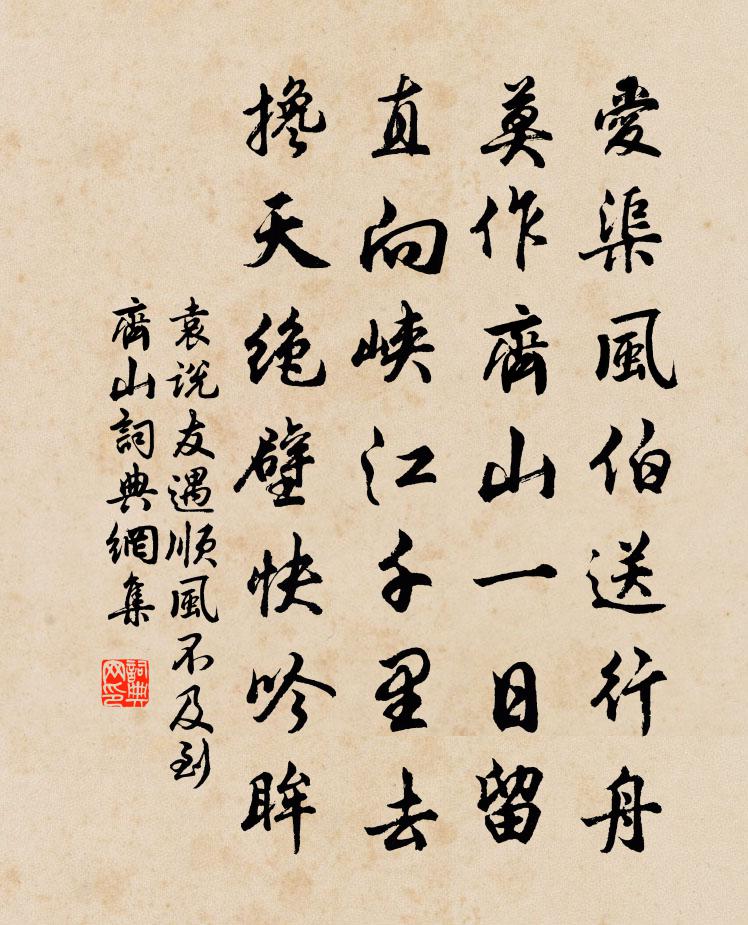 愛渠風伯送行舟
莫作齊山一日留
直向峽江千里去
攙天絕壁快吟眸
袁说友遇順風不及到
齊山詞典網集
詞典
网印